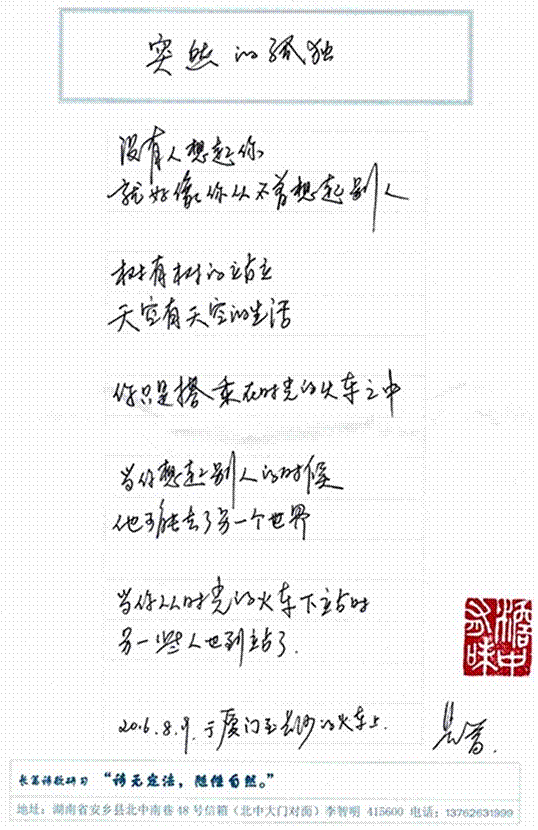 突然的孤独
没有人想起你
就好像你从不曾想起别人
树有树的站立
天空有天空的生活
你只是搭乘在时光的火车之中
当你想起别人的时候
他可能去了另一个世界
当你从时光的火车下站时
另一些人也到站了.
2016.8.9.于厦门至长沙的火车上.
长篇诗歌研习 “诗无定法，随性自然。”
地址：湖南省安乡县北中南巷48号信箱（北中大门对面）李智明 415600 电话：13762631999